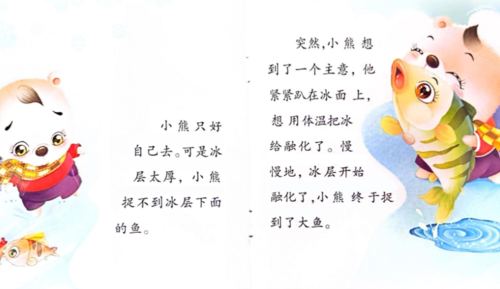 小熊只好
自己去。可是冰
层太厚，小熊
捉不到冰层下面
的鱼。
突然,小熊想
到了一个主意，他
紧紧趴在冰面上，
想用体温把冰
给融化了。慢
慢地，冰层开始
融化了,小熊终于捉
到了大鱼。